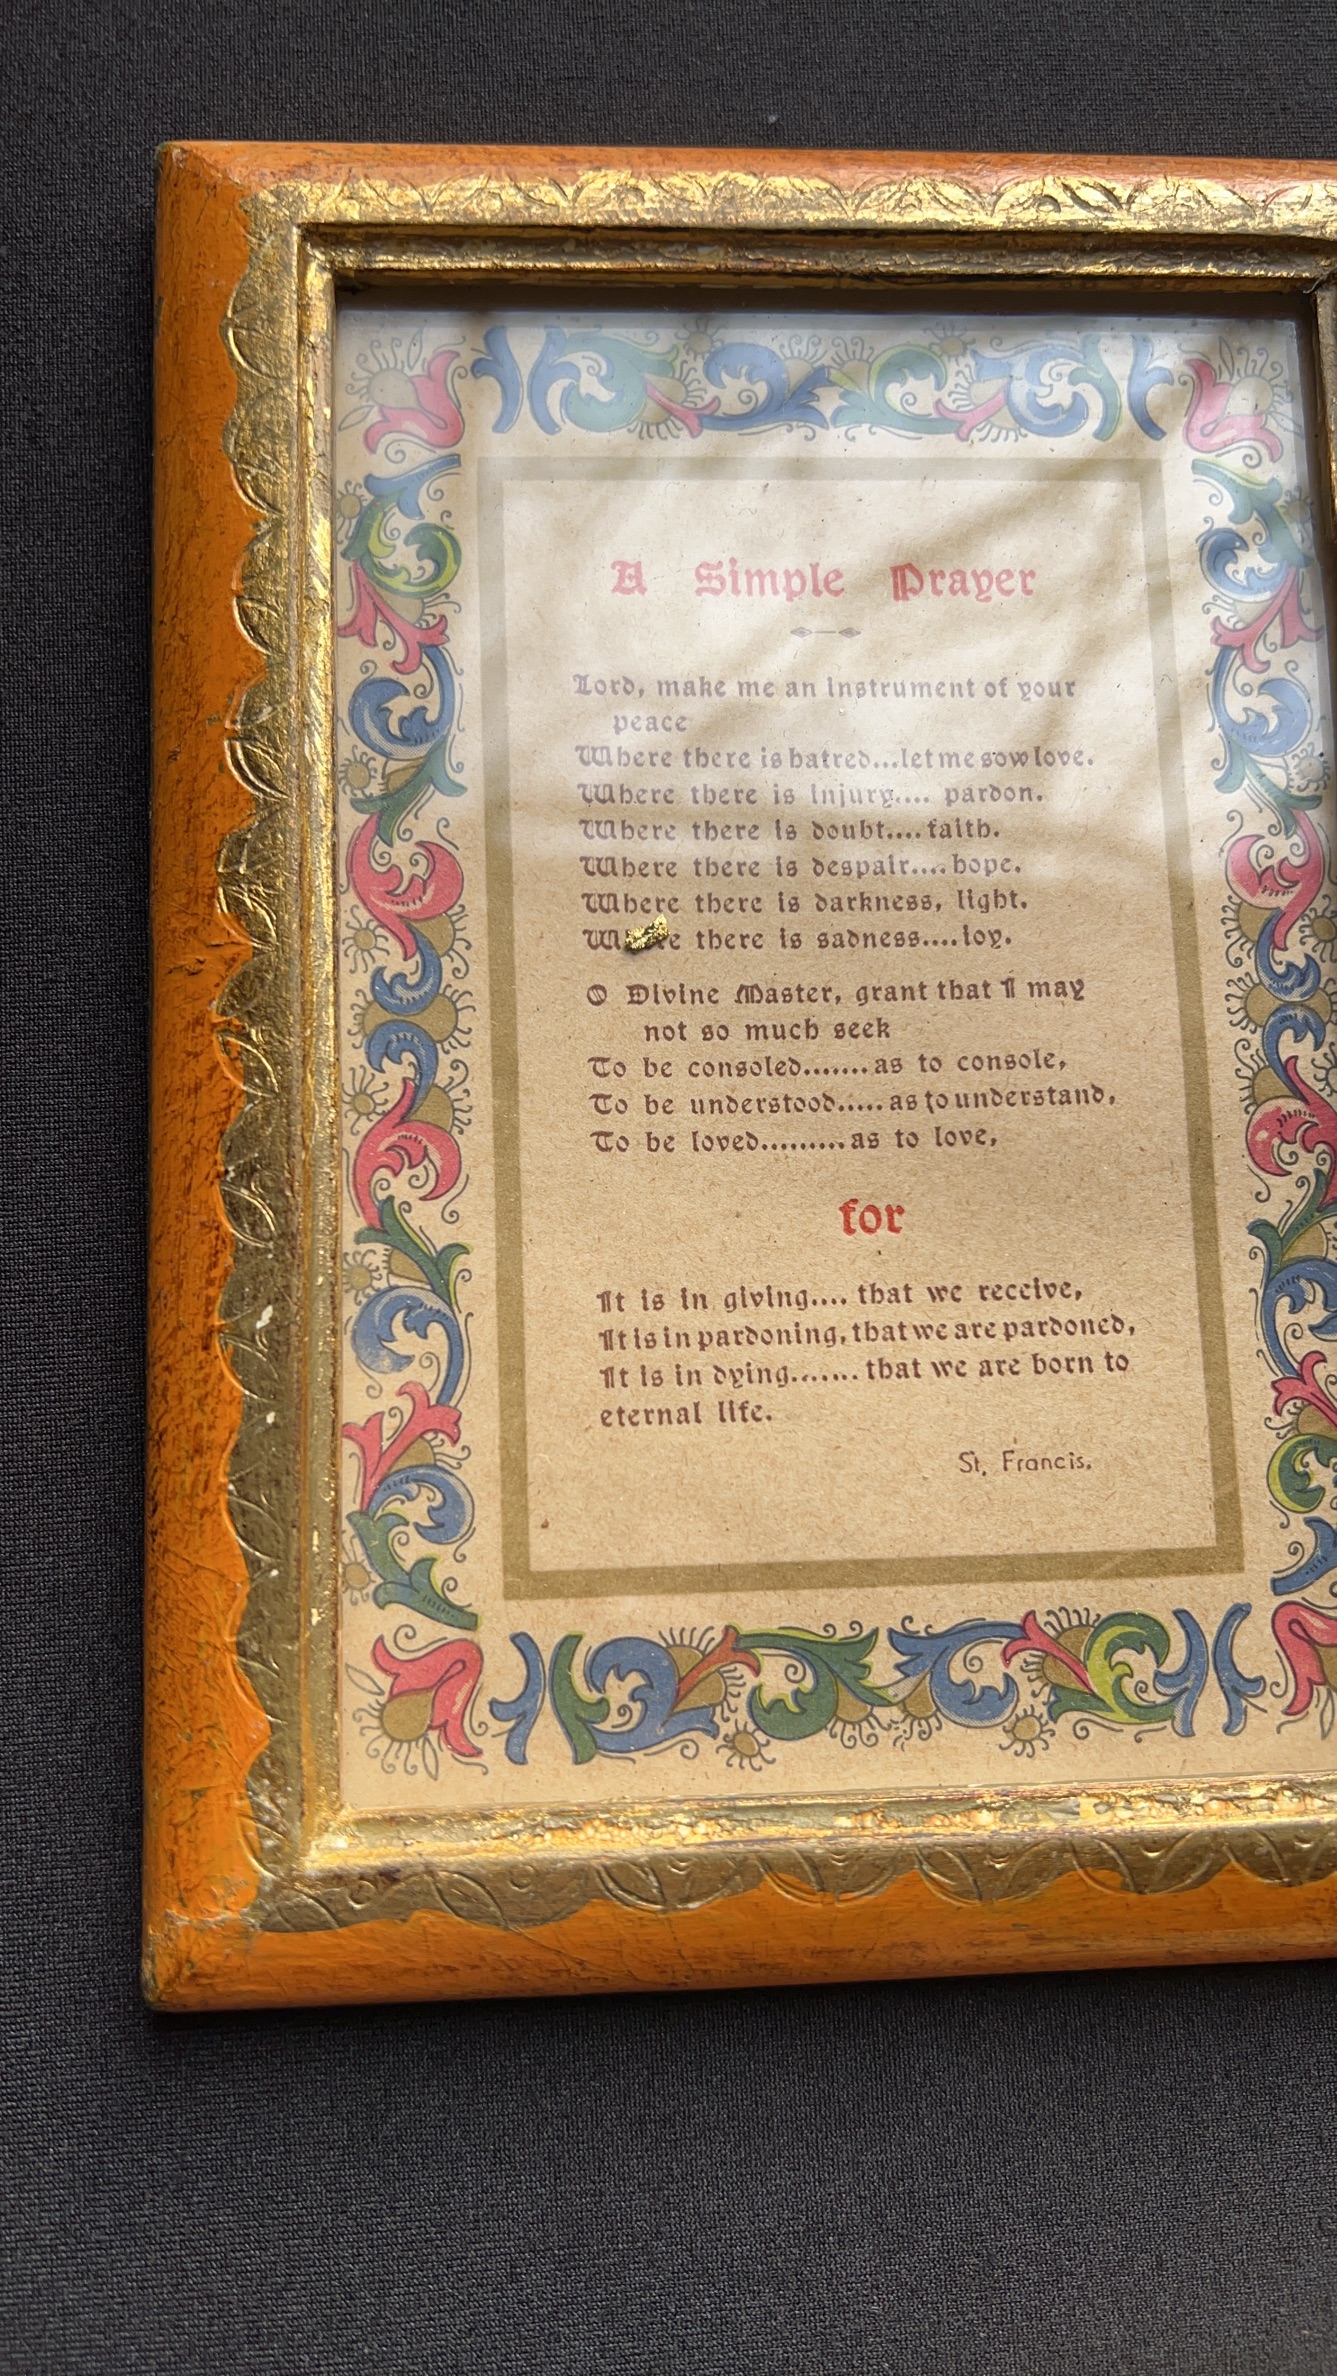 A Simple Prayer
Lord, make me an instrument of your
peace
Where there is hatred...let me sow love.
Where there is injury.... pardon.
Where there is doubt....faith.
Where there is despair....hope.
Where there is darkness, light.
there is sadness....joy.
O Divine Master, grant that I may
not so much seek
To be consoled.......as to console,
To be understood.....as to understand,
To be loved.........as to love,
for
It is in giving.... that we receive,
It is in pardoning, that we are pardoned,
It is in dying....... that we are born to
eternal life.
St. Francis.